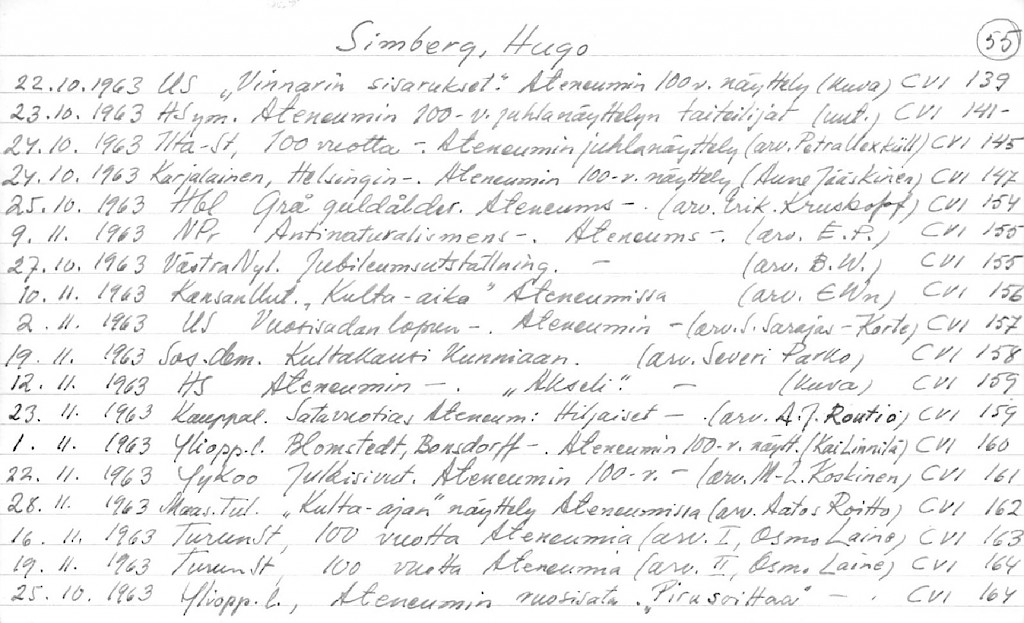 Simberg, Hugo 55
22.10.1963 US „Vinnarin sisarukset". Ateneumin 100 v. näyttely (kuva) CVI 139
23.10.1963 HS ym. Ateneumin 100-v. juhlanäyttelyn taiteilijat (uut.) CVI 141-
24.10.1963 Ilta-St, 100 vuotta -. Ateneumin juhlanäyttely (arv. Petra Uexküll) CVI 145
24.10.1963 Karjalainen, Helsingin -. Ateneumin 100-v. näyttely (Aune Jääskinen) CVI 147
25.10.1963 Hbl Grå guldålder. Ateneums -. (arv. Erik Kruskopf) CVI 154
9.11.1963 NPr Antinaturalismens -. Ateneums -. (arv. E.P.) CVI 155
27.10.1963 Västra Nyl. Jubileumsutställning. - (arv. B.W.) CVI 155
10.11.1963 Kansan Uut. „Kulta-aika" Ateneumissa (arv. EWn) CVI 156
2.11.1963 US Vuosisadan lopun -. Ateneumin - (arv. S. Sarajas-Korte) CVI 157
19.11.1963 Sos.dem. Kultakausi kunniaan. (arv. Severi Parko) CVI 158
12.11.1963 HS Ateneumin -. „Akseli" - (kuva) CVI 159
23.11.1963 Kauppal. Satavuotias Ateneum: Hiljaiset - .(arv. A.J. Routio) CVI 159
1.11.1963 Yliopp.l. Blomstedt, Bonsdorff -. Ateneumin 100-v. näytt. (Kai Linnilä) CVI 160
22.11.1963 Yykoo Julkisivut. Ateneumin 100-v. - (arv. M-L. Koskinen) CVI 161
28.11.1963 Maas.Tul. „Kulta-ajan" näyttely Ateneumissa (arv. Aatos Roitto) CVI 162
16.11.1963 Turun St, 100 vuotta Ateneumia (arv. I, Osmo Laine) CVI 163
19.11.1963 Turun St, 100 vuotta Ateneumia (arv. II, Osmo Laine) CVI 164
25.10.1963 Yliopp.l., Ateneumin vuosisata. „Piru soittaa" - . CVI 164